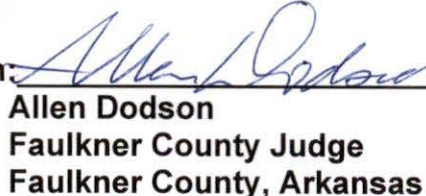 Allen Dodson
Allen Dodson
Faulkner County Judge
Faulkner County, Arkansas